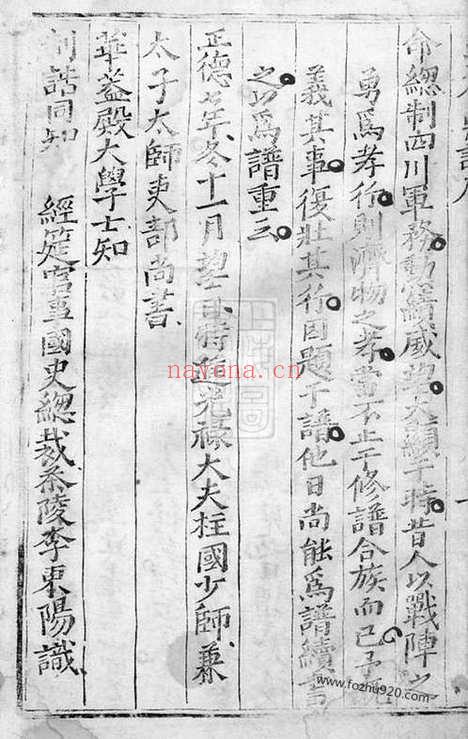 命總制四川軍務勳績威望大顯于時昔人以戰陣之
勇爲孝行則濟物之孝當不止于修譜合族而已予既
義其事復壯其行因題于譜他日尚能爲譜續書
之以爲譜重云
正德七年冬十一月望日特進光祿大夫柱國少師兼
太子太師吏部尚書
華蓋殿大學士知
制誥同知 經筵官事國史總裁茶陵李東陽識
nayona.cn
www.fozhu920.com